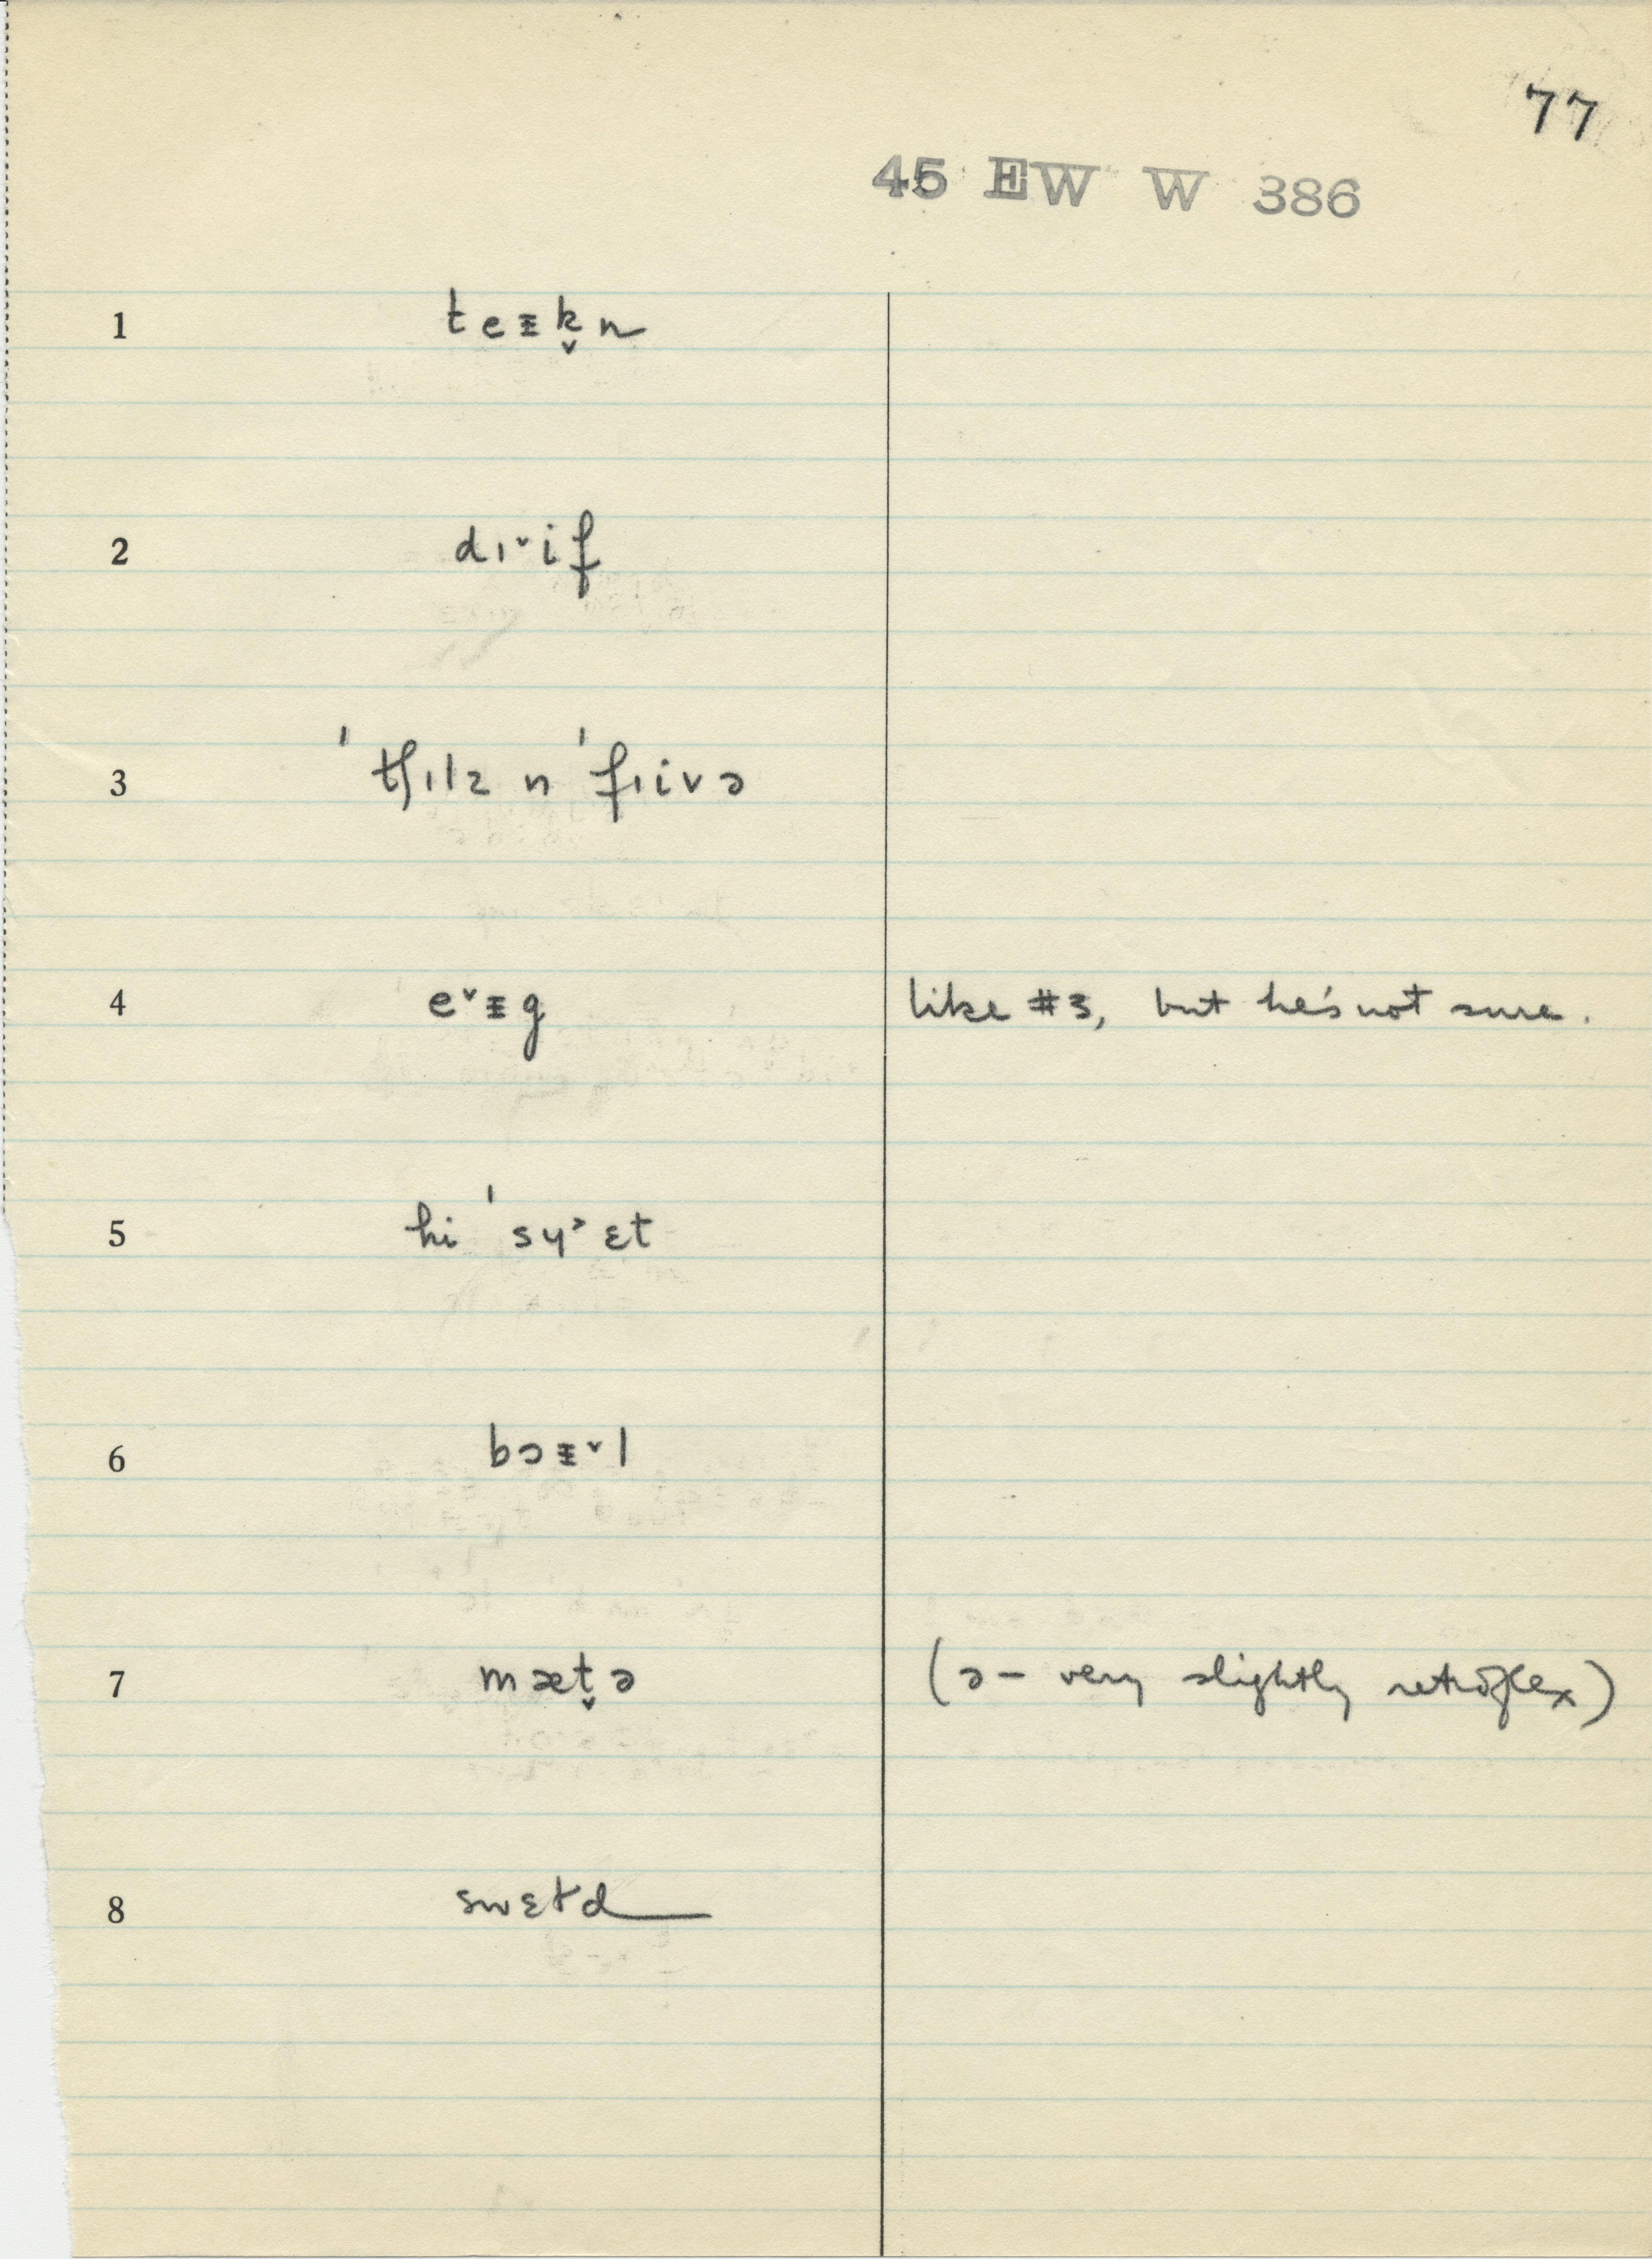 77
45 EW W 386
1 teᵻk̬n
2 dɪ˅if
3 ˈˈtʃɪlz n ˈˈfɪivə
4 e˅ᵻg like #3, but he's not sure.
5 hi ˈˈsɥ˃ɛt
6 bɔᵻ˅l
7 mæt̬ə (ə – very slightly retroflex)
8 swɛtd